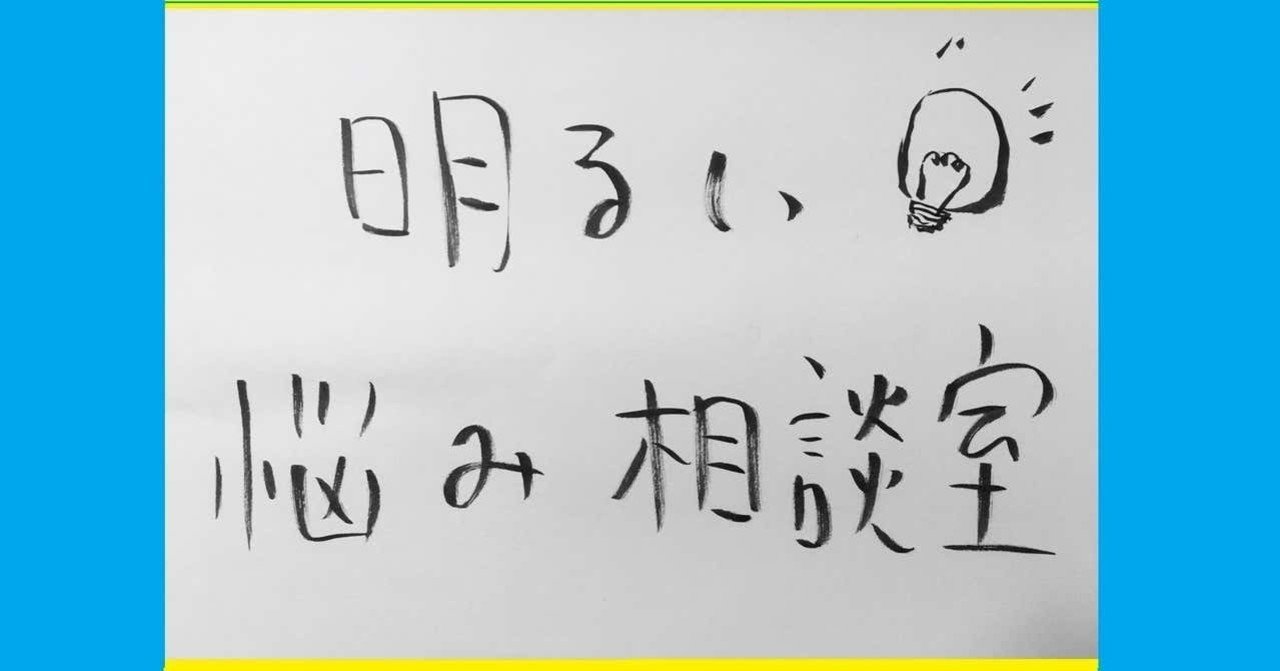 明るい
悩み相談室